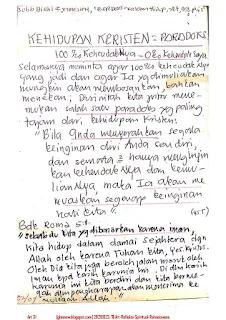 KEHIDUPAN KRISTEN = PARADOKS
100% Kehendak-Nya - 0% Kehendak Saya
Selamanya meminta agar 100% kehendak-Nya
yang jadi dan agar Ia yg dimuliakan
mungkin akan membosankan, bahkan
menekan; Disinilah kita justru mene-
mukan salah satu paradoks yg paling
tajam dari kehidupan Kristen:
"Bila Anda menyerahkan segala
keinginan dari Anda sendiri,
dan semata-2 hanya menginginkan
kan kehendak-Nya dan kemu-
liaan-Nya, maka Ia akan me-
muaskan segenap keinginan
hati kita"
Roma 5:1
"Sebab itu kita yg dibenarkan karena iman,
kita hidup dalam damai sejahtera dgn
Allah oleh karena Tuhan kita, Yes. Kristus.
Oleh Dia kita juga beroleh jalan masuk oleh
iman kpd kasih karunia ini. Di dlm kasih
karunia ini kita berdiri dan kita bermegah
dlm pengharapan akan menerima ke-
muliaan Allah."